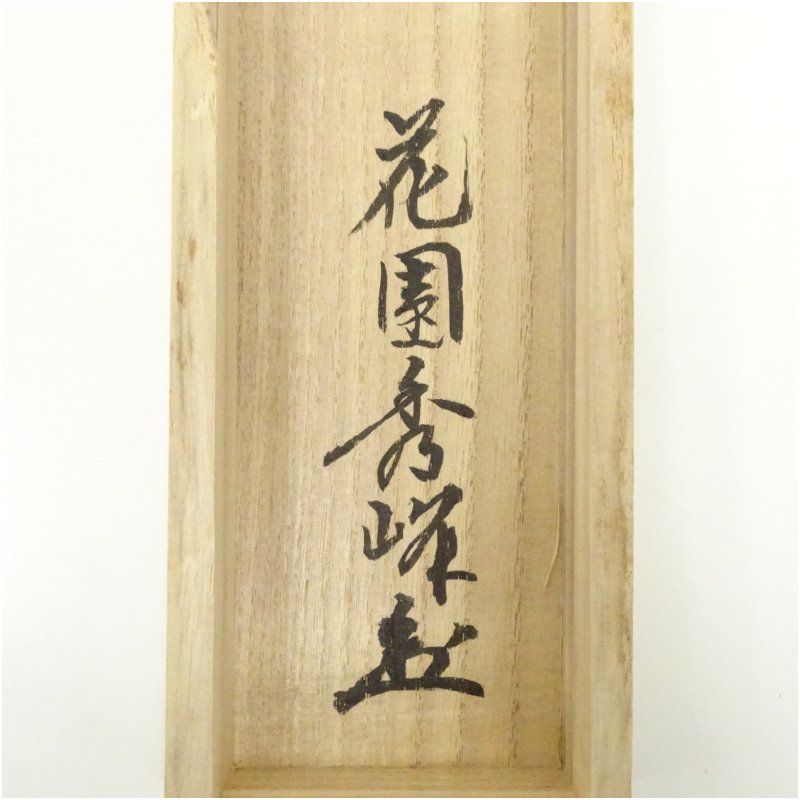 花園秀峰題